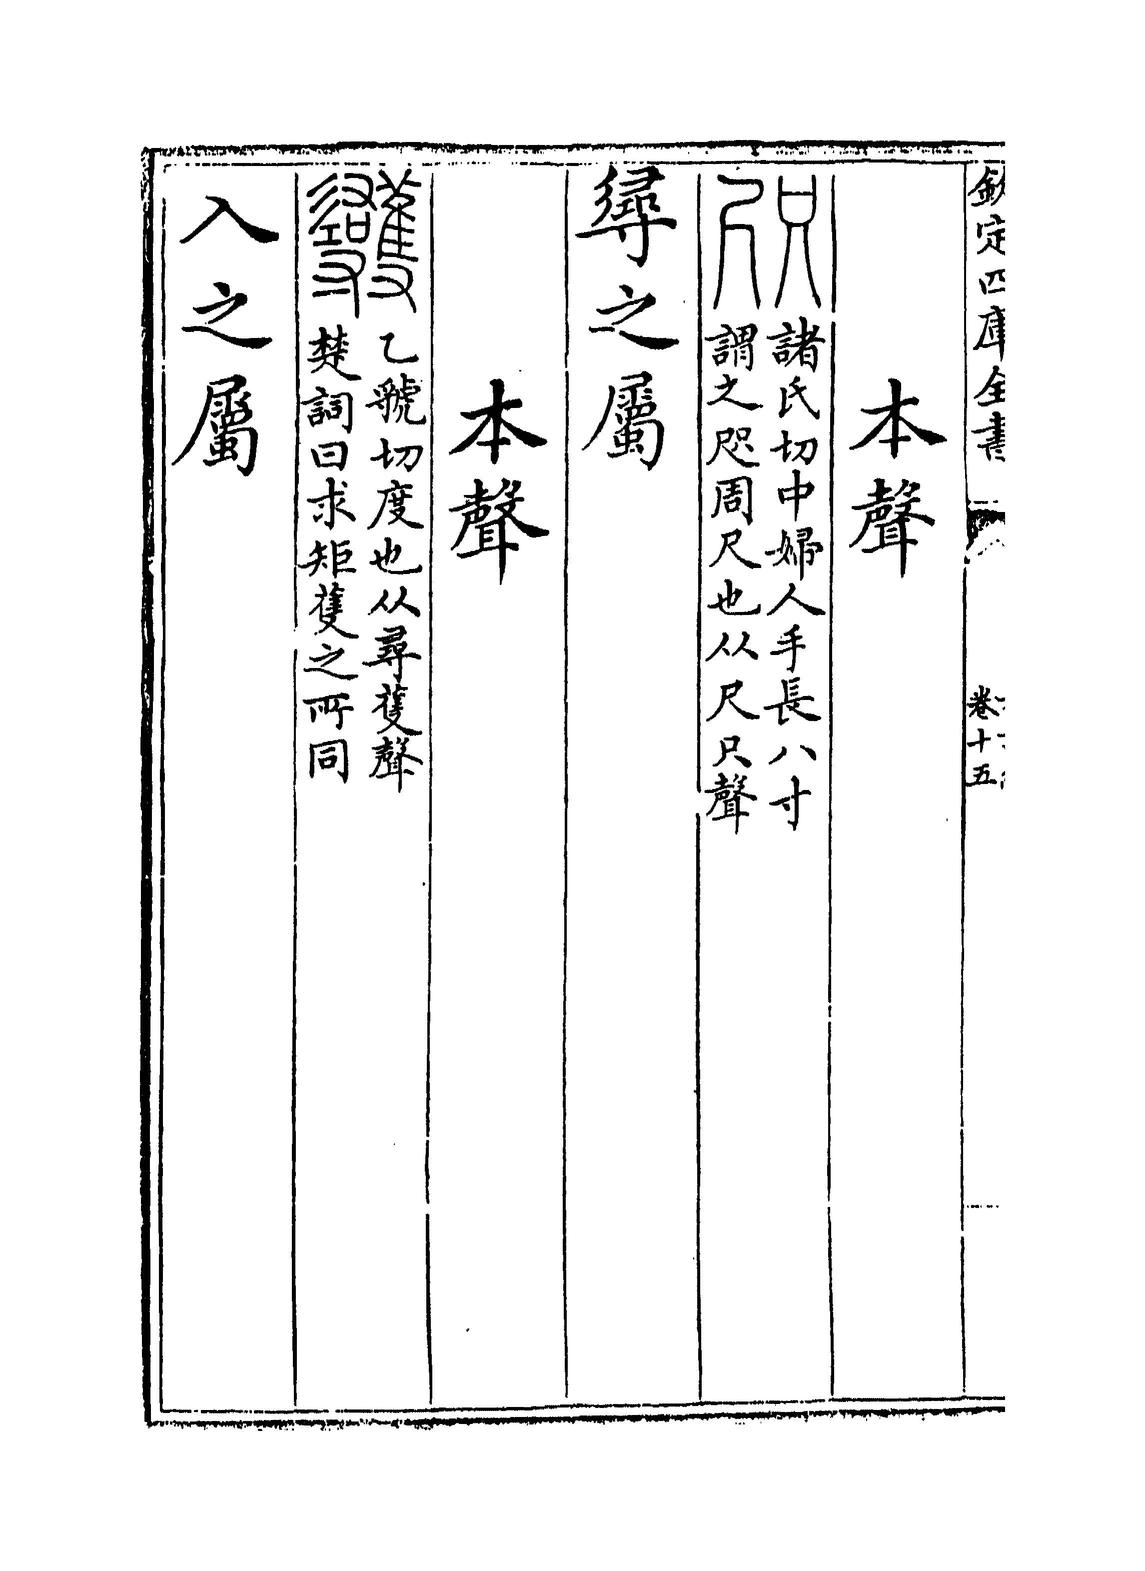 欽定四庫全書
卷十五
本聲
咫諸氏切中婦人手長八寸
謂之咫周尺也从尺只聲
𢒫之屬
本聲
乙虢切度也从尋蒦聲
楚詞曰求矩蒦之所同
入之屬